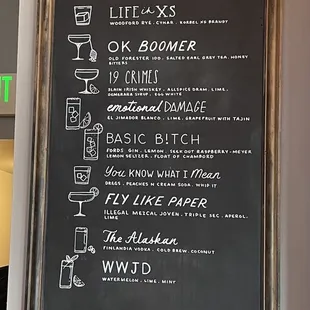 LIFE in XS
WOODFORD RYE . CYNAR . KORBEL NO BRANDY
OK BOOMER
OLD FORESTER 100 . SALTED EARL GREY TEA . HONEY
BITTERS
19 CRIMES
SLAIN IRISH WHISKEY . ALLSPICE DRAM . LIME .
DEMERARA SYRUP . EGG WHITE
emotional DAMAGE
EL JIMADOR BLANCO . LIME . GRAPEFRUIT WITH TAJIN
BASIC B!TCH
FORDS GIN . LEMON . SEEK OUT RASPBERRY - MEYER
LEMON SELTZER . FLOAT OF CHAMBORD
YOU KNOW WHAT I Mean
DREGS . PEACHES N CREAM SODA . WHIP IT
FLY LIKE PAPER
ILLEGAL MEZCAL JOVEN . TRIPLE SEC . APEROL .
LIME
The Alaskan
FINLANDIA VODKA . COLD BREW . COCONUT
WWJD
WATERMELON . LIME . MINT